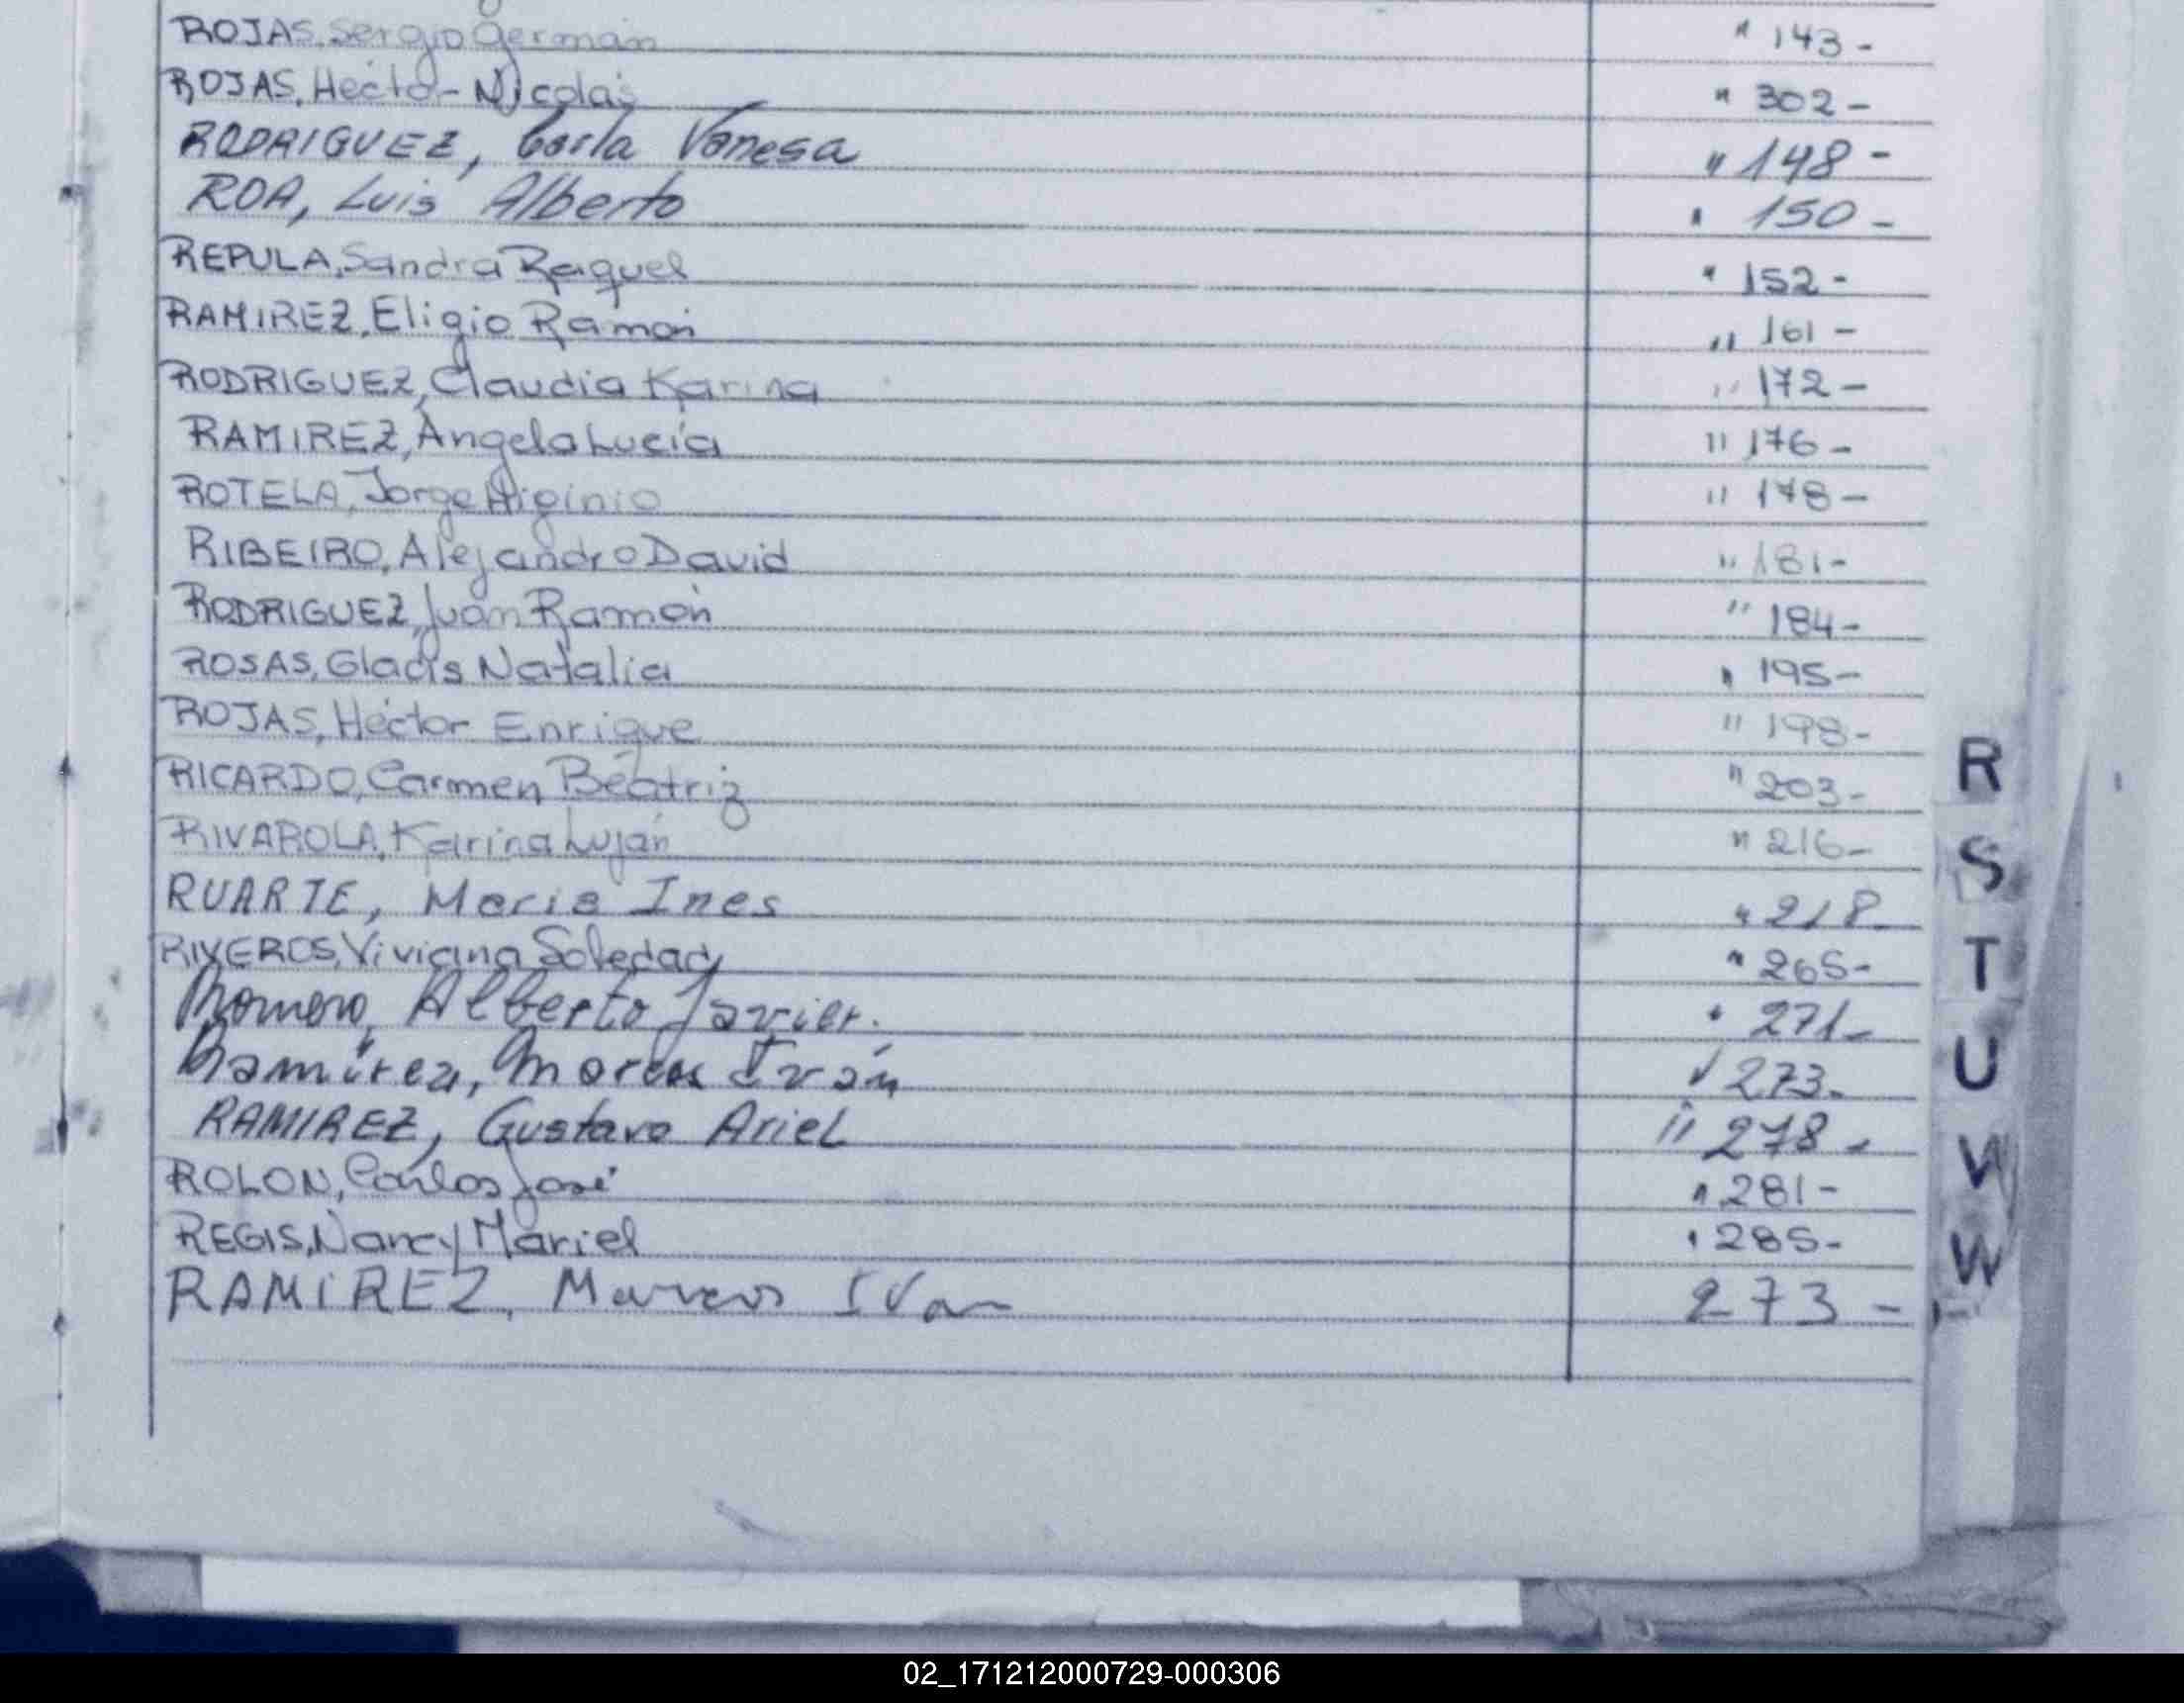 ROJAS, Sergio Germán " 143-
ROJAS, Hécto- Nicolás " 302-
RODRIGUEZ, Carla Vanesa " 148-
ROA, Luis Alberto " 150-
REPULA, Sandra Raquel " 152-
RAMIREZ, Eligio Ramón " 161-
RODRIGUEZ, Claudia Karina " 172-
RAMIREZ, Angela Lucía " 176-
ROTELA, Jorge Higinio " 178-
RIBEIRO, Alejandro David " 181-
RODRIGUEZ, Juan Ramón " 184-
ROSAS, Gladis Natalia " 195-
ROJAS, Héctor Enrique " 198-
RICARDO, Carmen Beatriz " 203-
RIVAROLA, Karina Luján " 216-
RUARTE, Maria Ines " 218-
RIVEROS, Viviana Soledad " 265-
Romero, Alberto Javier. " 271-
Ramírez, Marcos Iván " 273-
RAMIREZ, Gustavo Ariel " 278-
ROLON, Carlos José " 281-
REGIS, Nancy Mariel " 285-
RAMIREZ, Marcos Ivan 273-
R
S
T
U
V
W
02_171212000729-000306